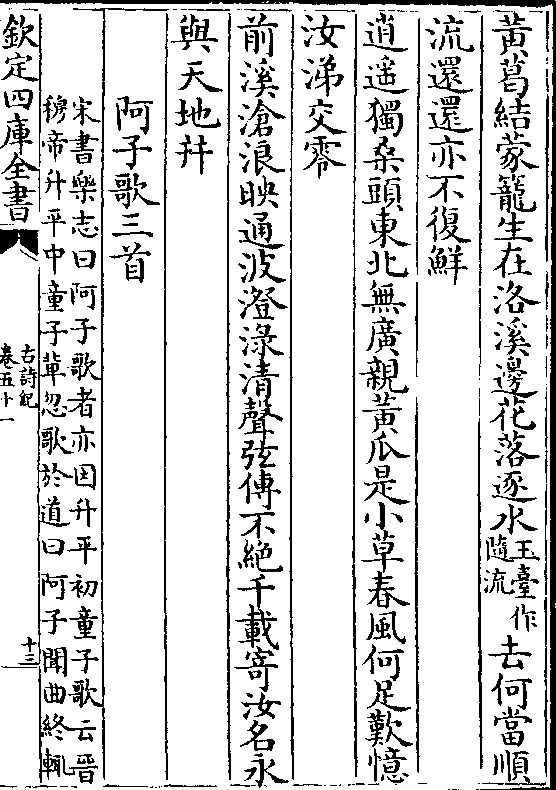 黄葛結蒙籠生在洛溪邊花落逐水玉臺作隨流去何當順
流還還亦不復鮮
逍遥獨桑頭東北無廣親黄瓜是小草春風何足歎憶
汝涕交零
前溪滄浪映通波澄淥清聲弦傳不絶千載寄汝名永
與天地并
阿子歌三首
宋書樂志曰阿子歌者亦因升平初童子歌云晋
穆帝升平中童子軰忽歌於道曰阿子聞曲終輒
欽定四庫全書
古詩紀
卷五十一
十三